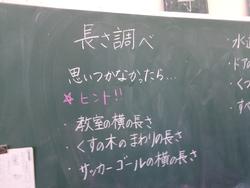 長さ調べ
思いつかなかったら…
☆ヒント!!
・教室の横の長さ
・くすの木のまわりの長さ
・サッカーゴールの横の長さ
・ドアの